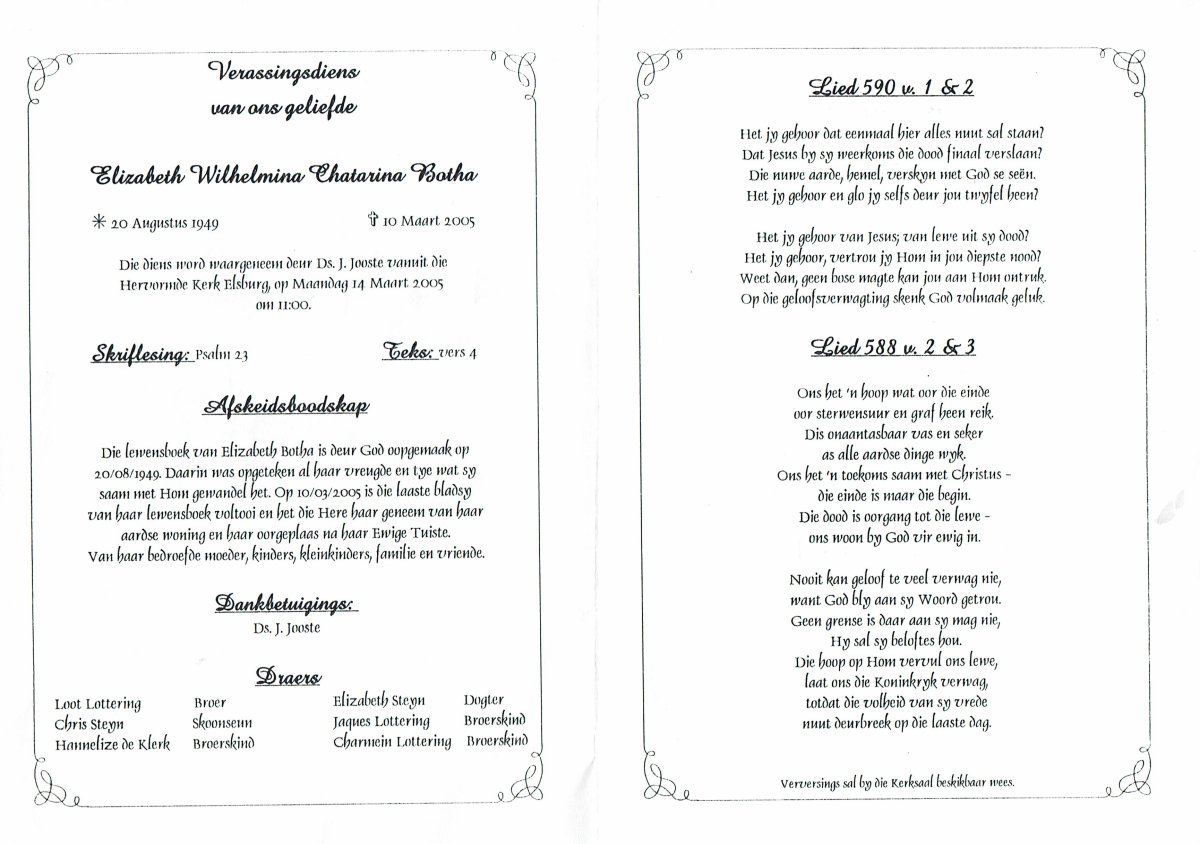 Verassingsdiens
van ons geliefde
Elizabeth Wilhelmina Chatarina Botha
20 Augustus 1949 10 Maart 2005
Die diens word waargeneem deur Ds. J. Jooste vanuit die
Hervormde Kerk Elsburg, op Maandag 14 Maart 2005
om 11:00.
Skriflesing: Psalm 23 Teks: vers 4
Afskeidsboodskap
Die lewensboek van Elizabeth Botha is deur God oopgemaak op
20/08/1949. Daarin was opgeteken al haar vreugde en tye wat sy
saam met Hom gewandel het. Op 10/03/2005 is die laaste bladsy
van haar lewensboek voltooi en het die Here haar geneem van haar
aardse woning en haar oorgeplaas na haar Ewige Tuiste.
Van haar bedroefde moeder, kinders, kleinkinders, familie en vriende.
Dankbetuigings:
Ds. J. Jooste
Draers
Loot Lottering Broer Elizabeth Steyn Dogter
Chris Steyn Skoonseun Jaques Lottering Broerskind
Hannelize de Klerk Broerskind Charmein Lottering Broerskind
Lied 590 v. 1 & 2
Het jy gehoor dat eenmaal hier alles nuut sal staan?
Dat Jesus by sy weerkoms die dood finaal verslaan?
Die nuwe aarde, hemel, verskyn met God se seën.
Het jy gehoor en glo jy selfs deur jou twyfel heen?
Het jy gehoor van Jesus; van lewe uit sy dood?
Het jy gehoor, vertrou jy Hom in jou diepste nood?
Weet dan, geen bose magte kan jou aan Hom ontruk.
Op die geloofsverwagting skenk God volmaak geluk.
Lied 588 v. 2 & 3
Ons het 'n hoop wat oor die einde
oor sterwensuur en graf heen reik.
Dis onaantasbaar vas en seker
as alle aardse dinge wyk.
Ons het 'n toekoms saam met Christus -
die einde is maar die begin.
Die dood is oorgang tot die lewe -
ons woon by God vir ewig in.
Nooit kan geloof te veel verwag nie,
want God bly aan sy Woord getrou.
Geen grense is daar aan sy mag nie,
Hy sal sy beloftes hou.
Die hoop op Hom vervul ons lewe,
laat ons die Koninkryk verwag,
totdat die volheid van sy vrede
nuut deurbreek op die laaste dag.
Verversings sal by die Kerksaal beskikbaar wees.